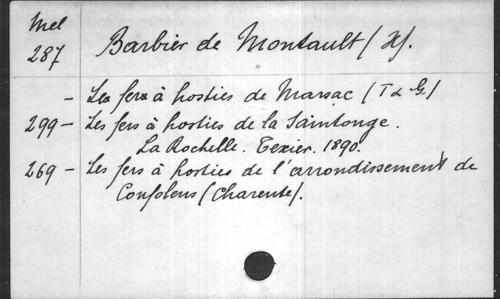 Mel
287 Barbier de Montault (X).
- Les fers à hosties de Marsac (T & G.)
299 - Les fers à hosties de la Saintonge.
La Rochelle. Texier. 1890.
269 - Les fers à hosties de l'arrondissement de
Confolens (Charente).